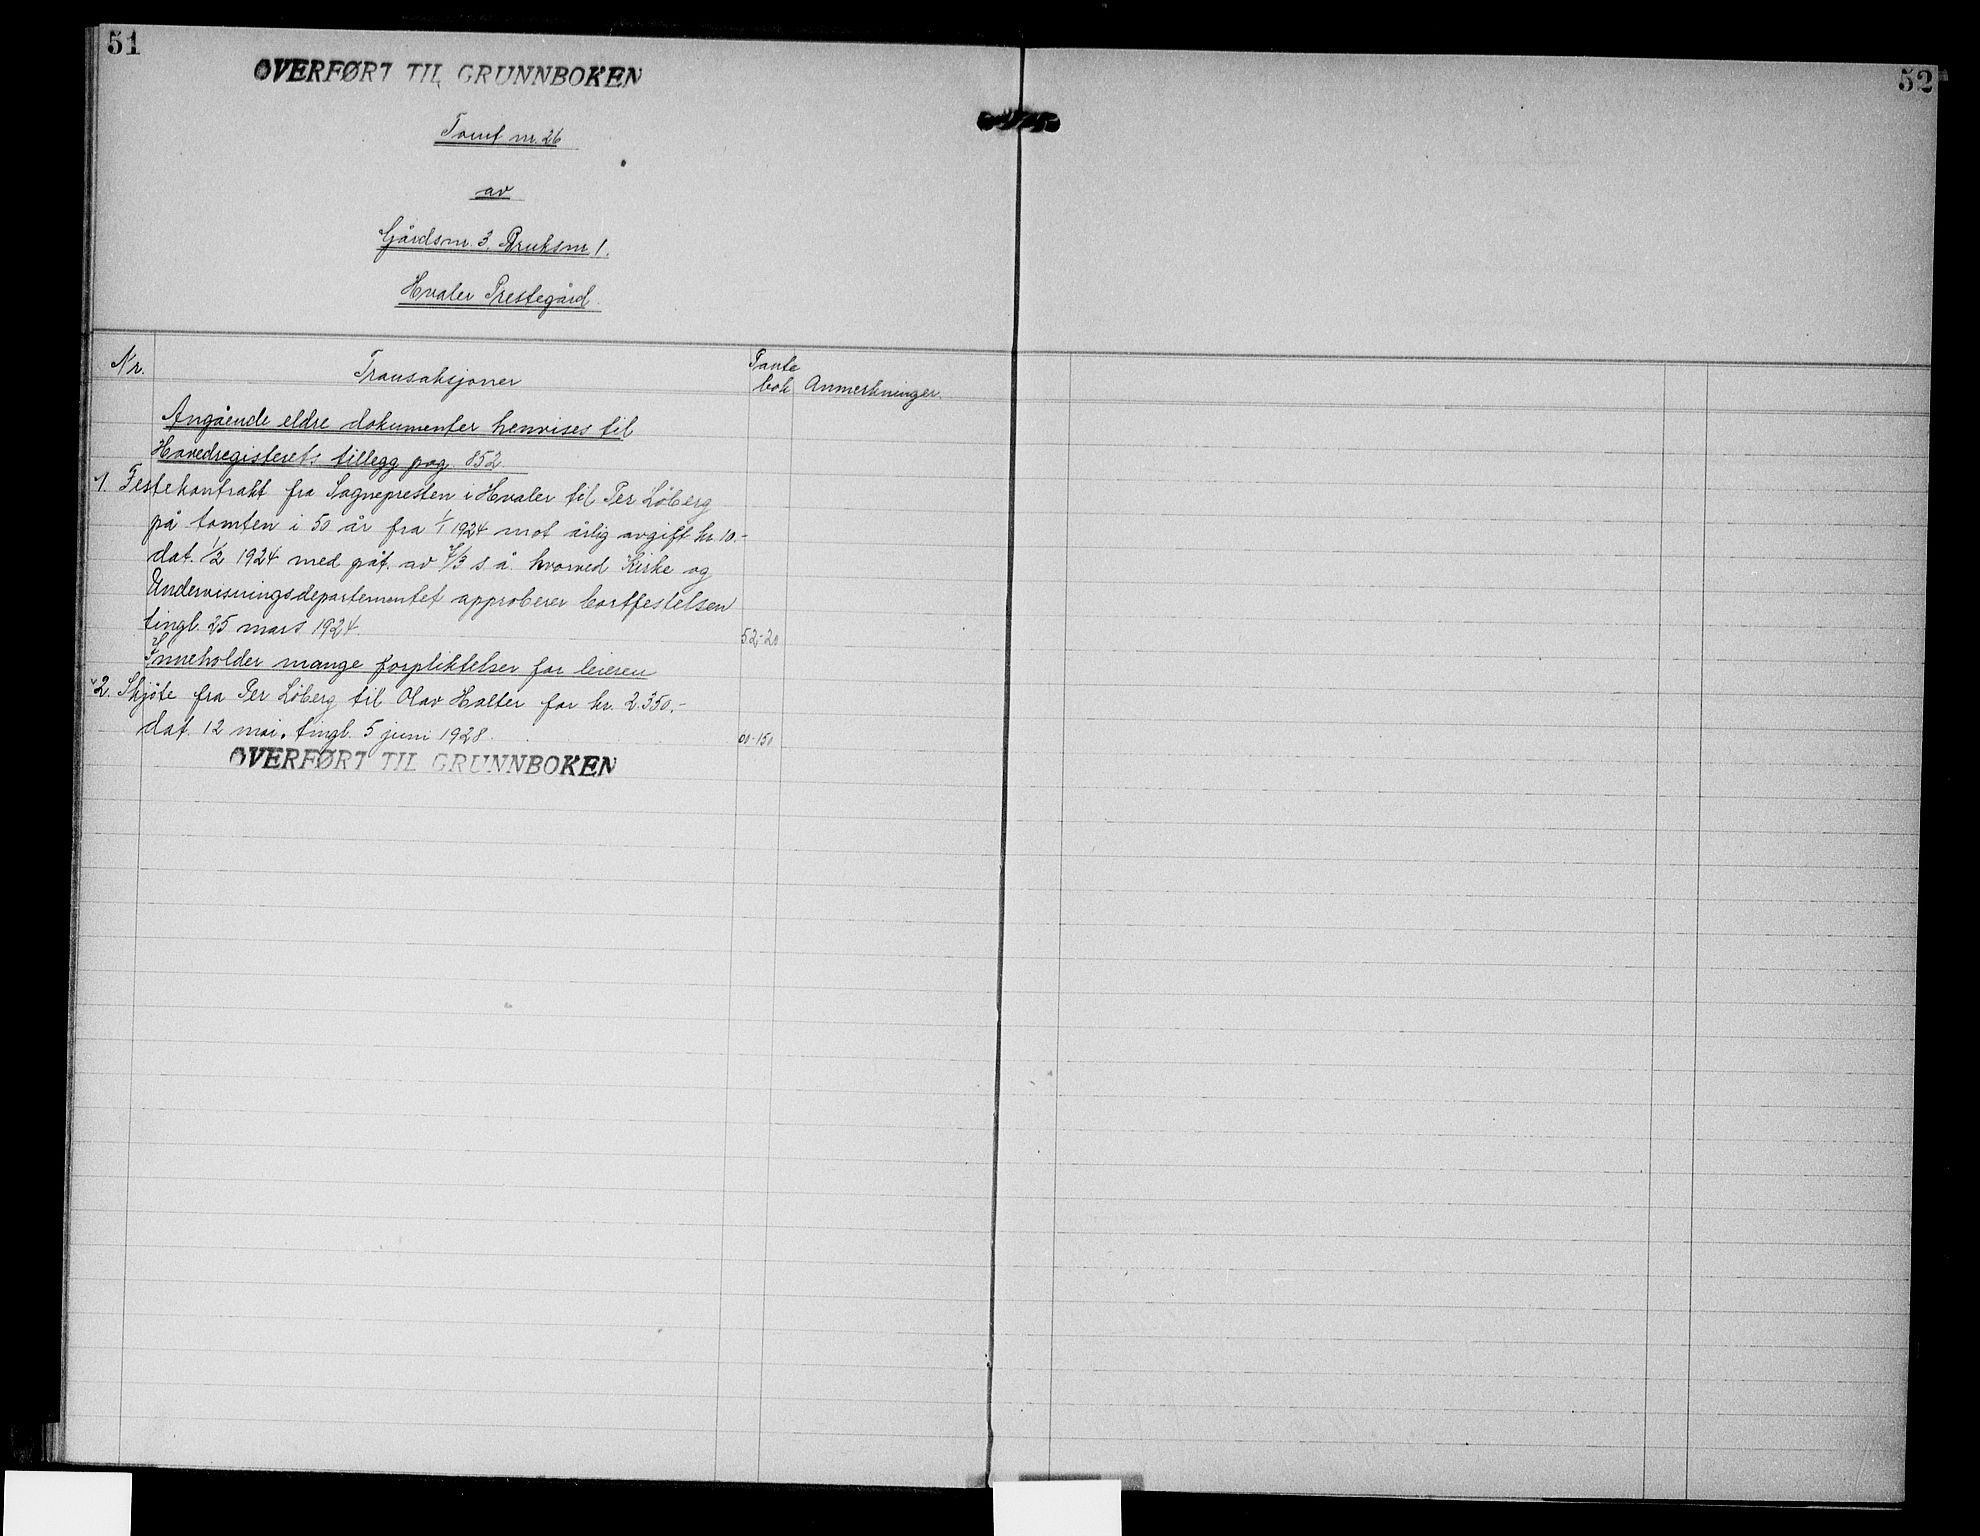 51
OVERFØRT TIL GRUNNBOKEN
Tomt nr. 26
av
Gårdsnr. 3, Bruksnr 1.
Hvaler Prestegård.
Nr. Transaksjoner Pante bok Anmerkninger.
Angående eldre dokumenter henvises til
Hovedregisterets tillegg pag 852
1. Festekontrakt fra Sognepresten i Hvaler til Per Löberg
på tomten i 50 år fra 1/1 1924 mot årlig avgift kr. 10.-
dat. 1/2 1924 med påt. av 7/3 s å. hvorved Kirke og
Undervisningsdepartementet approberer bortfestelsen
tingl. 25 mars 1924. 52-20
Inneholder mange forpliktelser for leieren
2. Skjöte fra Per Löberg til Olav Halter for kr. 2.350.-
dat. 12 mai. tingl. 5 juni 1928. 60-150
OVERFØRT TIL GRUNNBOKEN
52